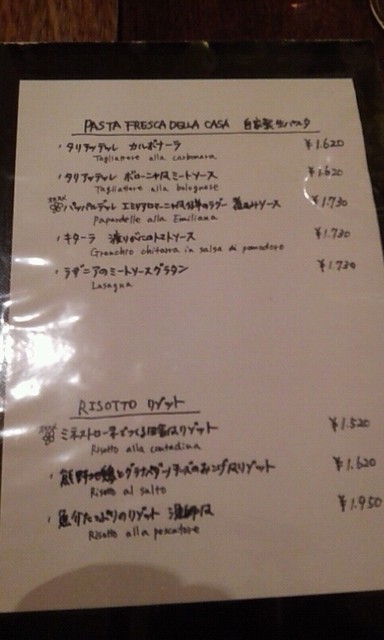 PASTA FRESCA DELLA CASA 自家製生パスタ
・タリアテッレ カルボナーラ ¥1.620
Tagliatere alla carbonara
・タリアテッレ ボローニャ風ミートソース ¥1.620
Tagliatere alla bolognese
パッパルデッレ エミリアロマーニャ ¥1.730
Papardelle alla Emiliana
・キターラ 渡りがにのトマトソース ¥1.730
Granchio chitarra in salsa di pomodoro
・ラザニアのミートソースグラタン ¥1.730
Lasagna
RISOTTO リゾット
ミネストローネでつくる田舎風リゾット ¥1.520
Risotto alla contadina
・ とグラナパダーノチーズの リゾット ¥1.620
Risotto al salto
・魚介たっぷりのリゾット 漁師風 ¥1.950
Risotto alla pescatore